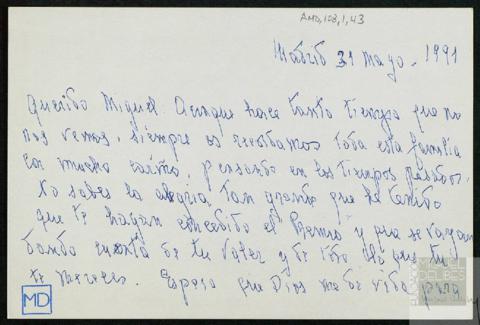 AMD,108,1,43
Madrid 31 mayo - 1991
Querido Miguel: Aunque hace tanto tiempo que no
nos vemos, siempre os recordamos toda esta familia
con mucho cariño, pensando en los tiempos pasados.
No sabes la alegria tan grande que he tenido
que te hayan concedido el Premio y que se vayan
dando cuenta de tu valer y de todo lo que tu
te mereces. Espero que Dios me de vida para
MD
DELIBES